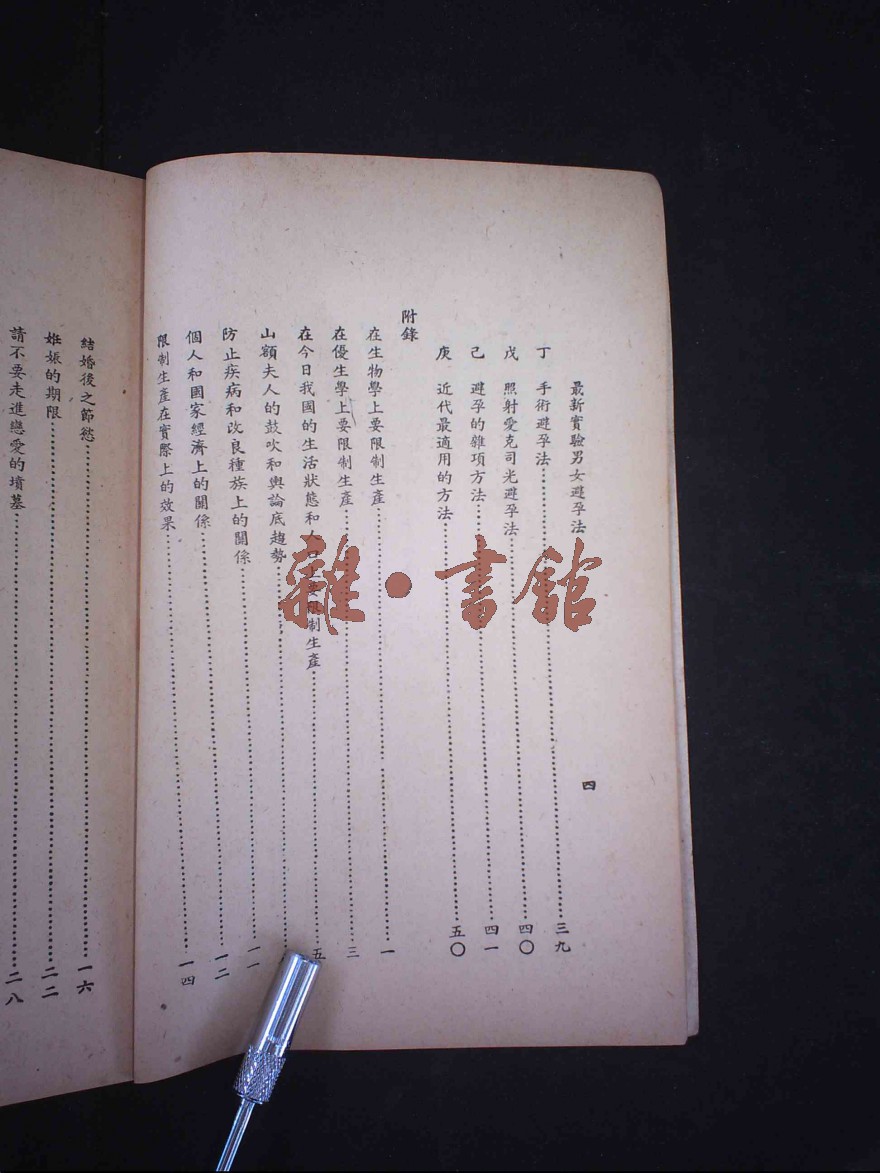 最新實驗男女避孕法 四
丁 手術避孕法 三九
戊 照射愛克司光避孕法 四〇
己 避孕的雜項方法 四一
庚 近代最適用的方法 五〇
附錄
在生物學上要限制生產 一
在優生學上要限制生產 三
在今日我國的生活狀態和人口上要限制生產 五
山額夫人的鼓吹和輿論底趨勢
防止疾病和改良種族上的關係 一一
個人和國家經濟上的關係 一二
限制生產在實際上的效果 一四
結婚後之節慾 一六
姙娠的期限 二二
請不要走進戀愛的墳墓 二八
雜·書館